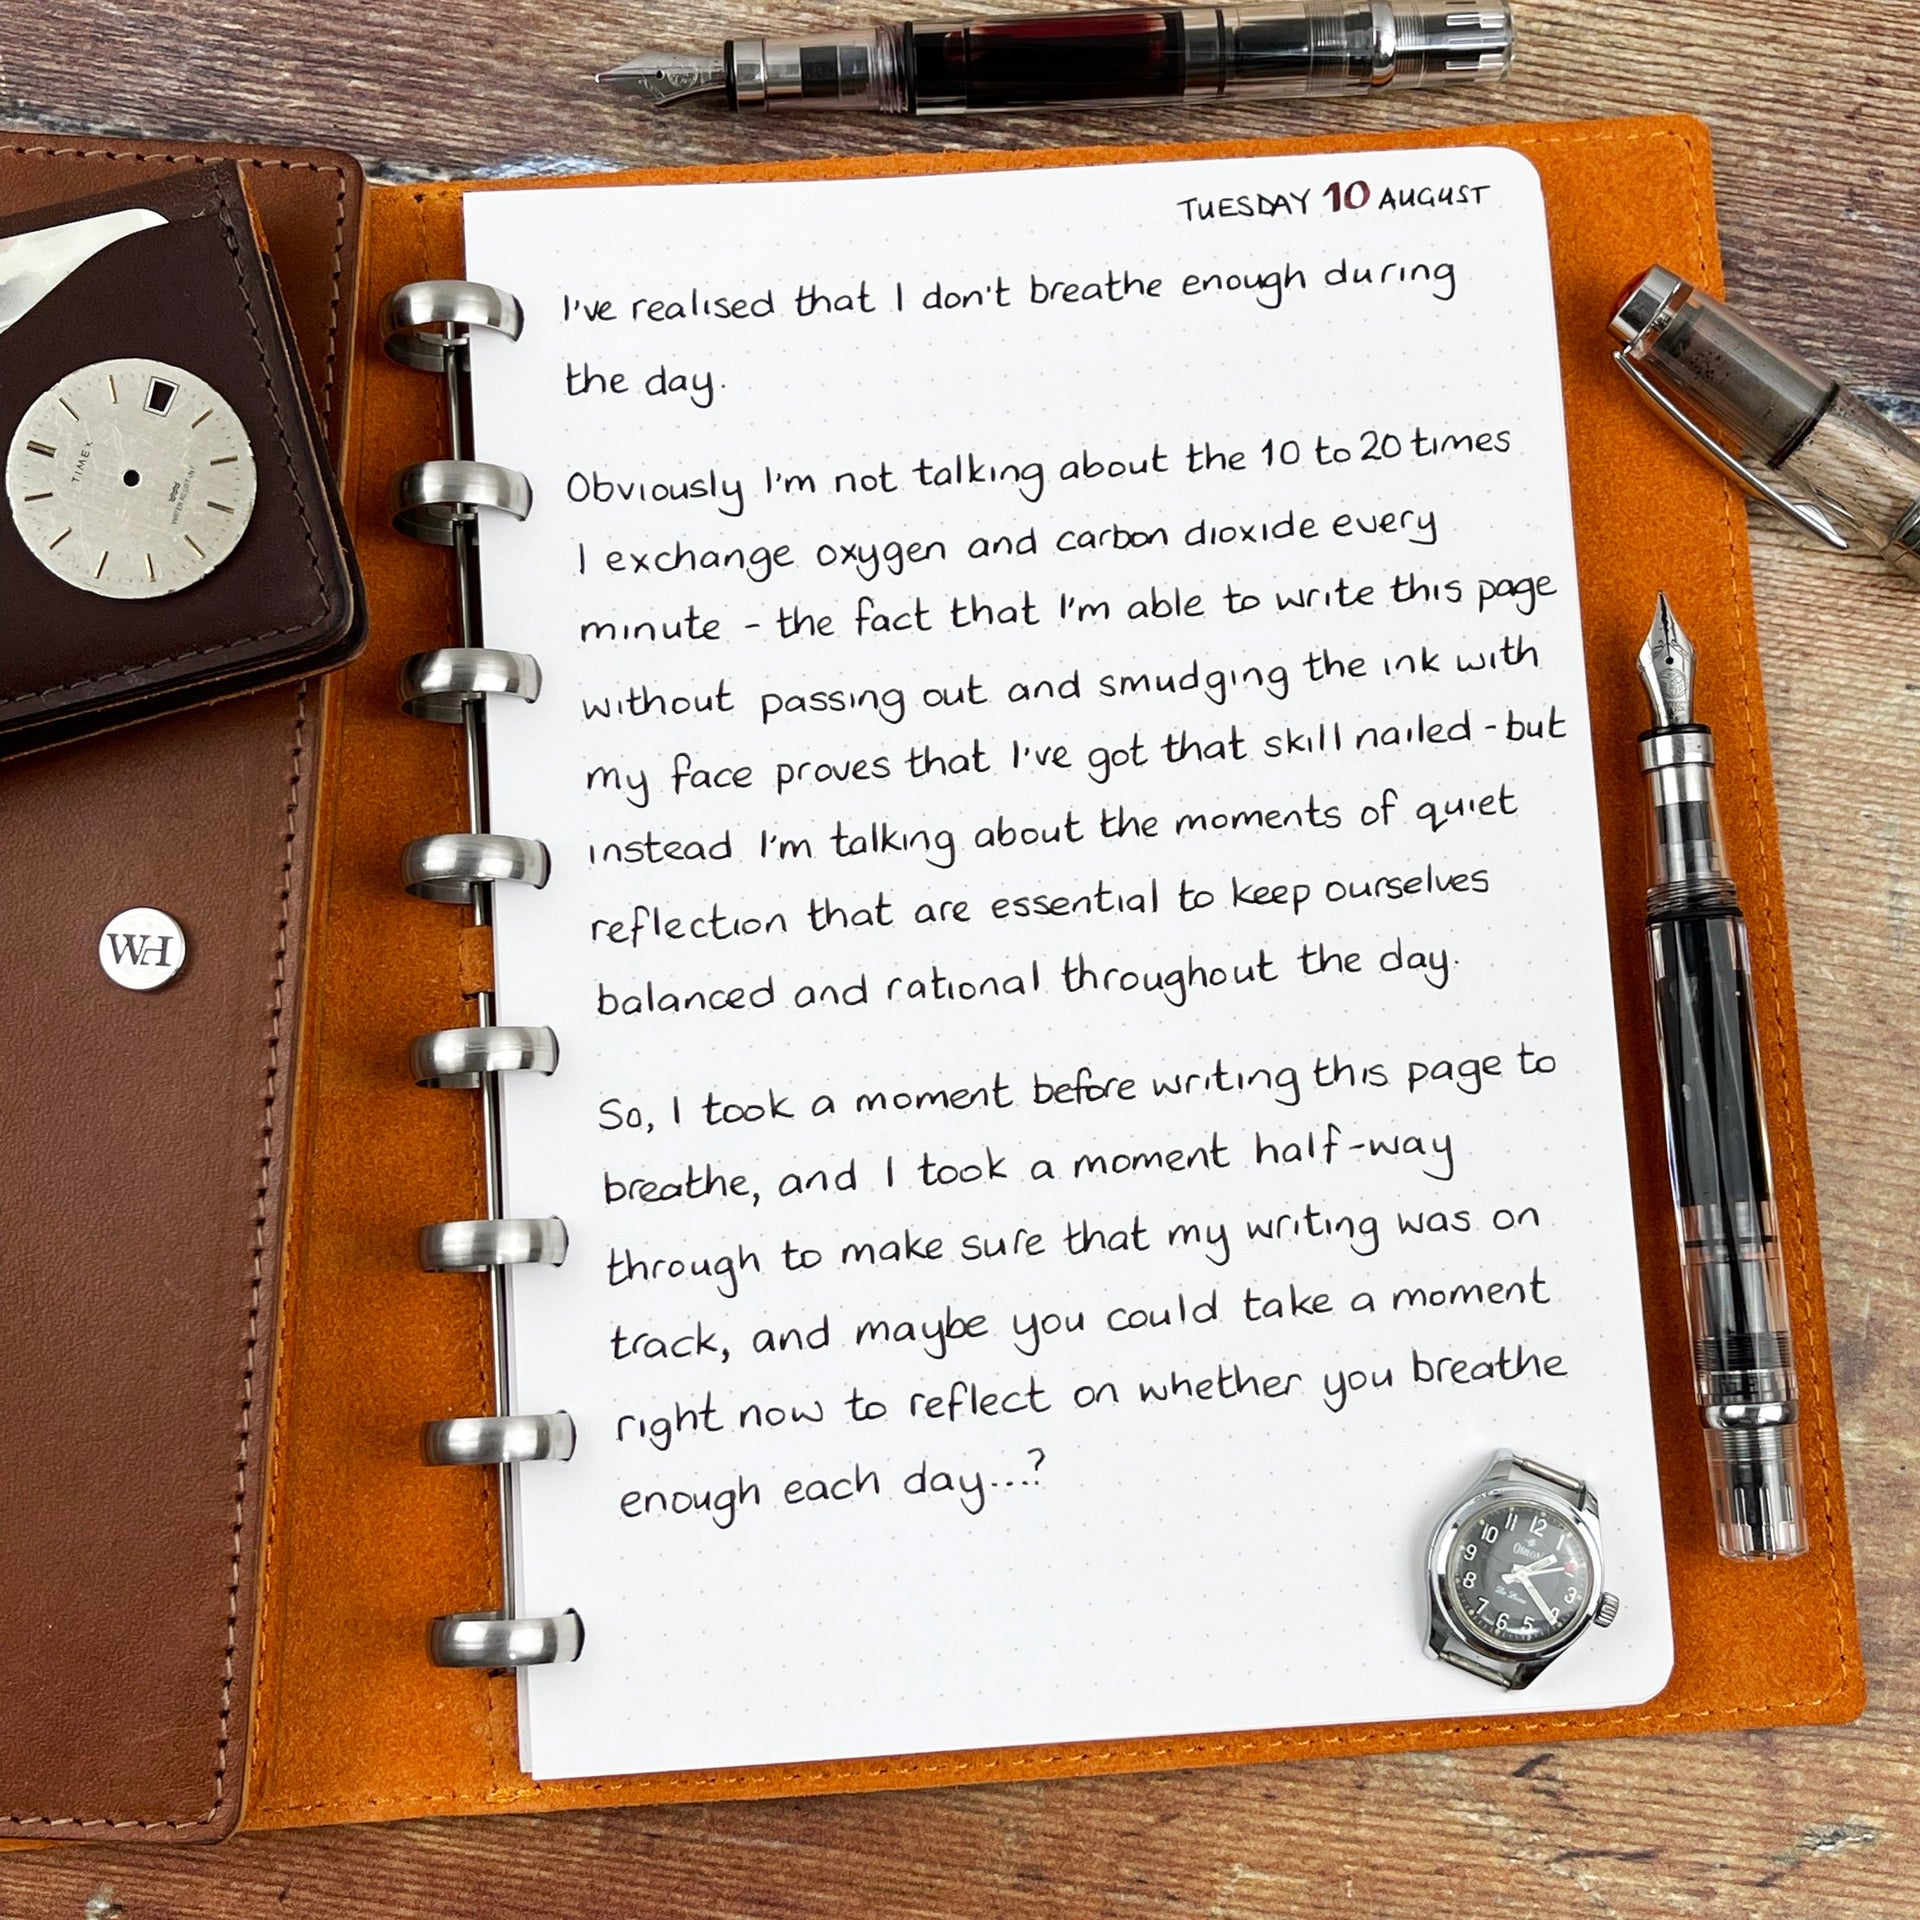 TUESDAY 10 AUGUST
I've realised that I don't breathe enough during
the day.
Obviously I'm not talking about the 10 to 20 times
I exchange oxygen and carbon dioxide every
minute - the fact that I'm able to write this page
without passing out and smudging the ink with
my face proves that I've got that skill nailed - but
instead I'm talking about the moments of quiet
reflection that are essential to keep ourselves
balanced and rational throughout the day.
So, I took a moment before writing this page to
breathe, and I took a moment half-way
through to make sure that my writing was on
track, and maybe you could take a moment
right now to reflect on whether you breathe
enough each day...?
TIMEX
WATER RESISTANT
WH
10 11 12 1
9
8 3
7 6 5